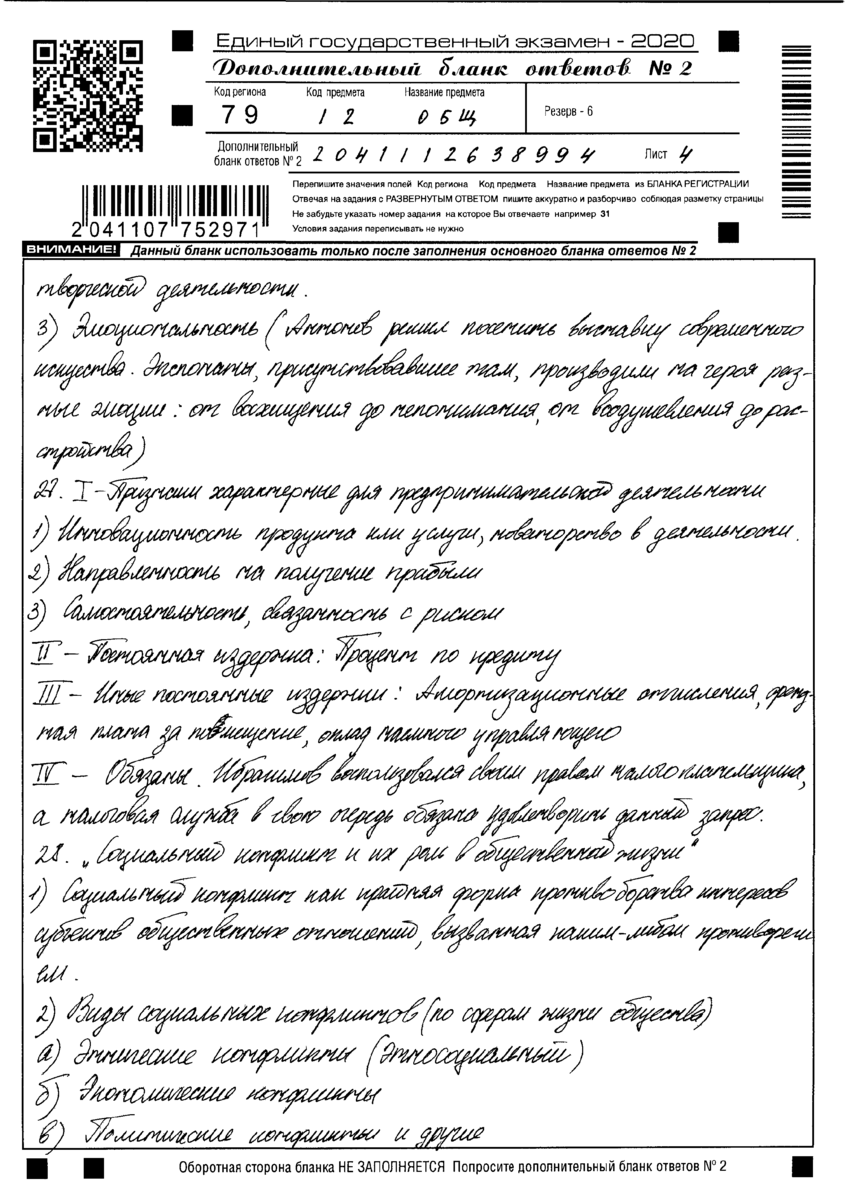 Единый государственный экзамен - 2020
Дополнительный бланк ответов № 2
Код региона Код предмета Название предмета
Резерв - 6
79 12 ОБЩ
Дополнительный бланк ответов № 2 2041112638994 Лист 4
Перепишите значения полей Код региона Код предмета Название предмета из БЛАНКА РЕГИСТРАЦИИ
Отвечая на задания с РАЗВЕРНУТЫМ ОТВЕТОМ пишите аккуратно и разборчиво соблюдая разметку страницы
Не забудьте указать номер задания на которое Вы отвечаете например 31
Условия задания переписывать не нужно
2 041107 752971
ВНИМАНИЕ! Данный бланк использовать только после заполнения основного бланка ответов № 2
творческой деятельности.
3) Эмоциональность (Антонов решил посетить выставку современного
искусства. Экспонаты, присутствовавшие там, производили на героя раз-
ные эмоции: от восхищения до непонимания, от воодушевления до рас-
стройства)
27. I - Признаки характерные для предпринимательской деятельности
1) Инновационность продукта или услуги, новаторство в деятельности.
2) Направленность на получение прибыли
3) Самостоятельность, связанность с риском
II - Постоянная издержка: Процент по кредиту
III - Иные постоянные издержки: Амортизационные отчисления, аренд-
ная плата за помещение, оклад наемного управляющего
IV - Обязаны. Ибрагимов воспользовался своим правом налогоплательщика,
а налоговая служба в свою очередь обязана удовлетворить данный запрос.
28. „Социальный конфликт и их роль в общественной жизни"
1) Социальный конфликт как крайняя форма противоборства интересов
субъектов общественных отношений, вызванная каким-либом противоречи
ем.
2) Виды социальных конфликтов (по сферам жизни общества)
а) Этнические конфликты (Этносоциальный)
б) Экономические конфликты
в) Политические конфликты и другие
Оборотная сторона бланка НЕ ЗАПОЛНЯЕТСЯ Попросите дополнительный бланк ответов № 2